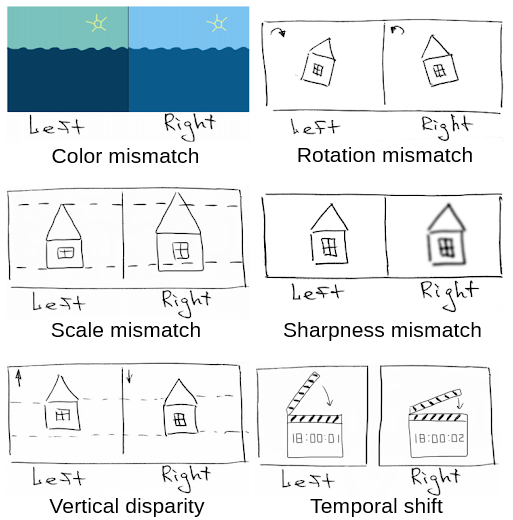 Left Right
Color mismatch
Left Right
Rotation mismatch
Left Right
Scale mismatch
Left Right
Sharpness mismatch
Left Right
Vertical disparity
18:00:01
18:00:02
Left Right
Temporal shift